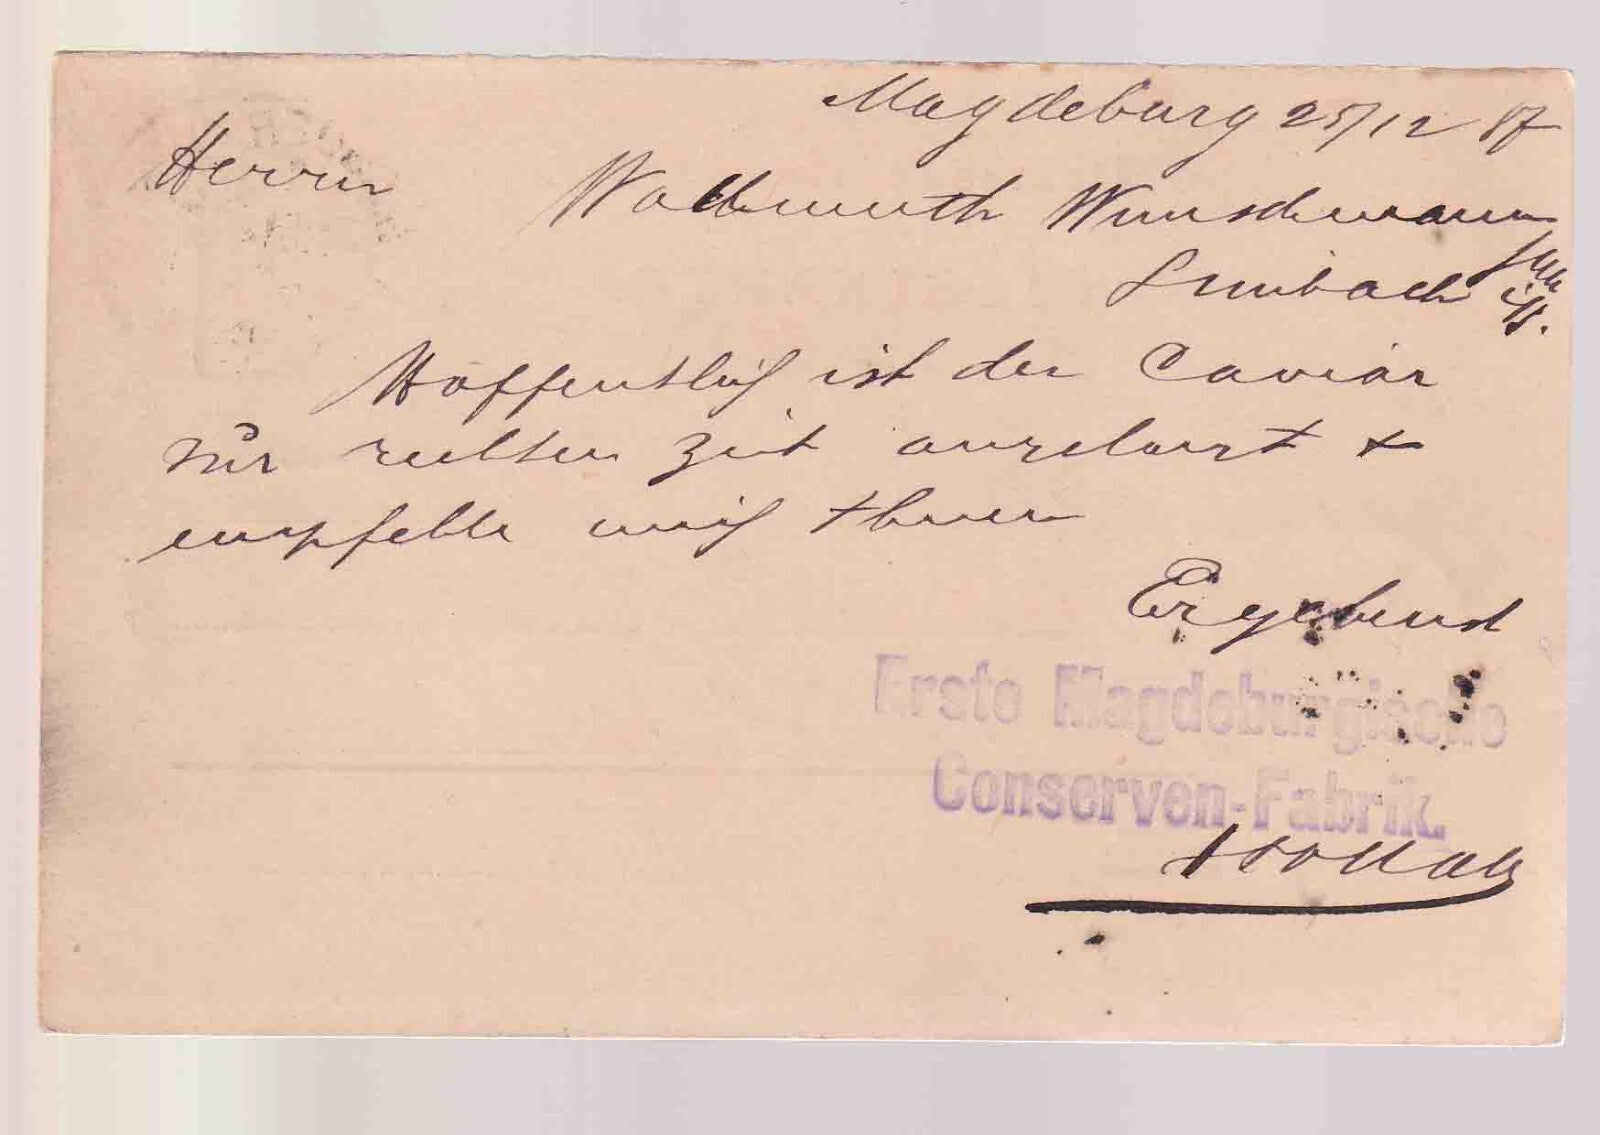 Magdeburg 25/12 87
Herrn
Wachsmuth Wunschmann
jun
Limbach i/S.
Hoffentlich ist der Caviar
zur rechten Zeit angelangt &
empfehle mich Ihnen
Ergebenst
Erste Magdeburgische
Conserven-Fabrik.